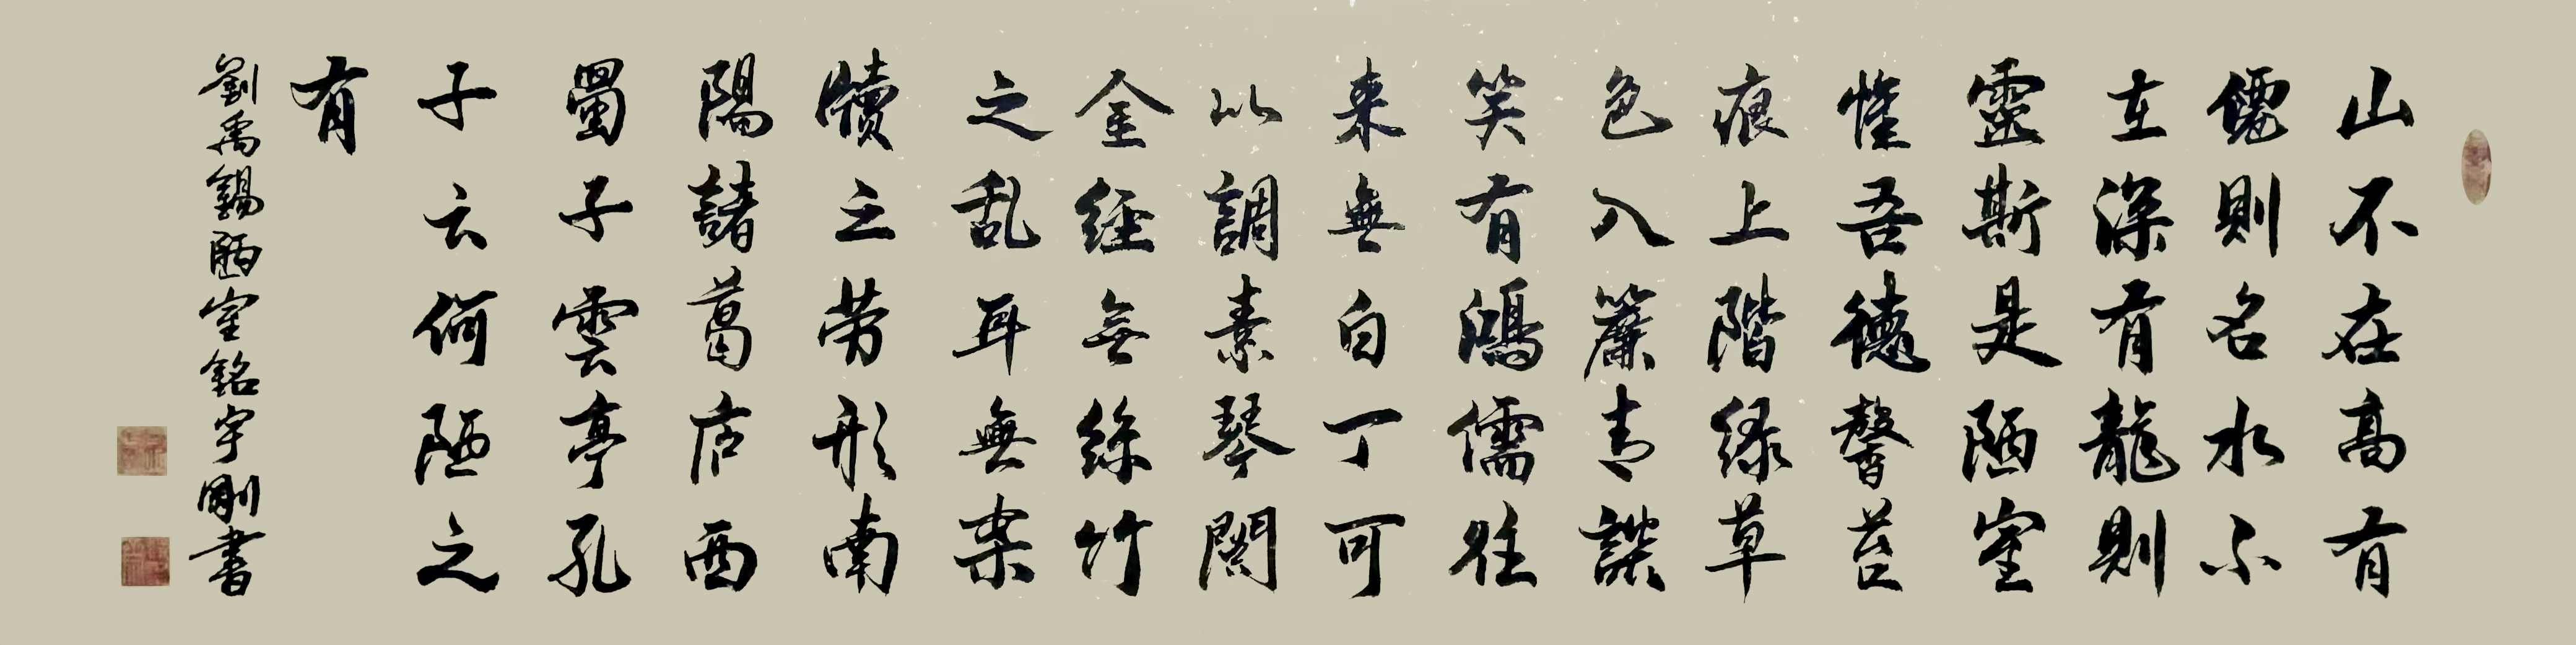 山不在高有
僊則名水不
在深有龍則
靈斯是陋室
惟吾德馨苔
痕上階緑草
色入簾青談
笑有鴻儒往
来無白丁可
以調素琴閱
金経無絲竹
之乱耳無案
牘之劳形南
陽諸葛庐西
蜀子雲亭孔
子云何陋之
有
劉禹錫陋室銘宇剛書